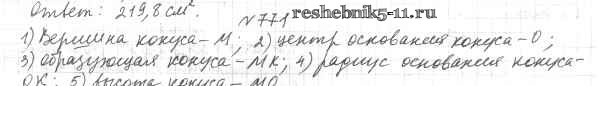 Ответ: 219,8 см².
№771
reshebnik5-11.ru
1) Вершина конуса - М; 2) центр основания конуса - О;
3) образующая конуса - МК; 4) радиус основания конуса -
ОК; 5) высота конуса - МО